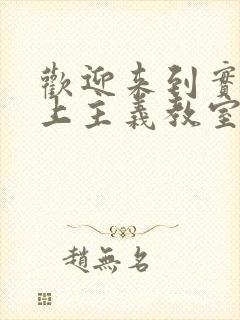 歡迎來到實
上主義教室
趙無名